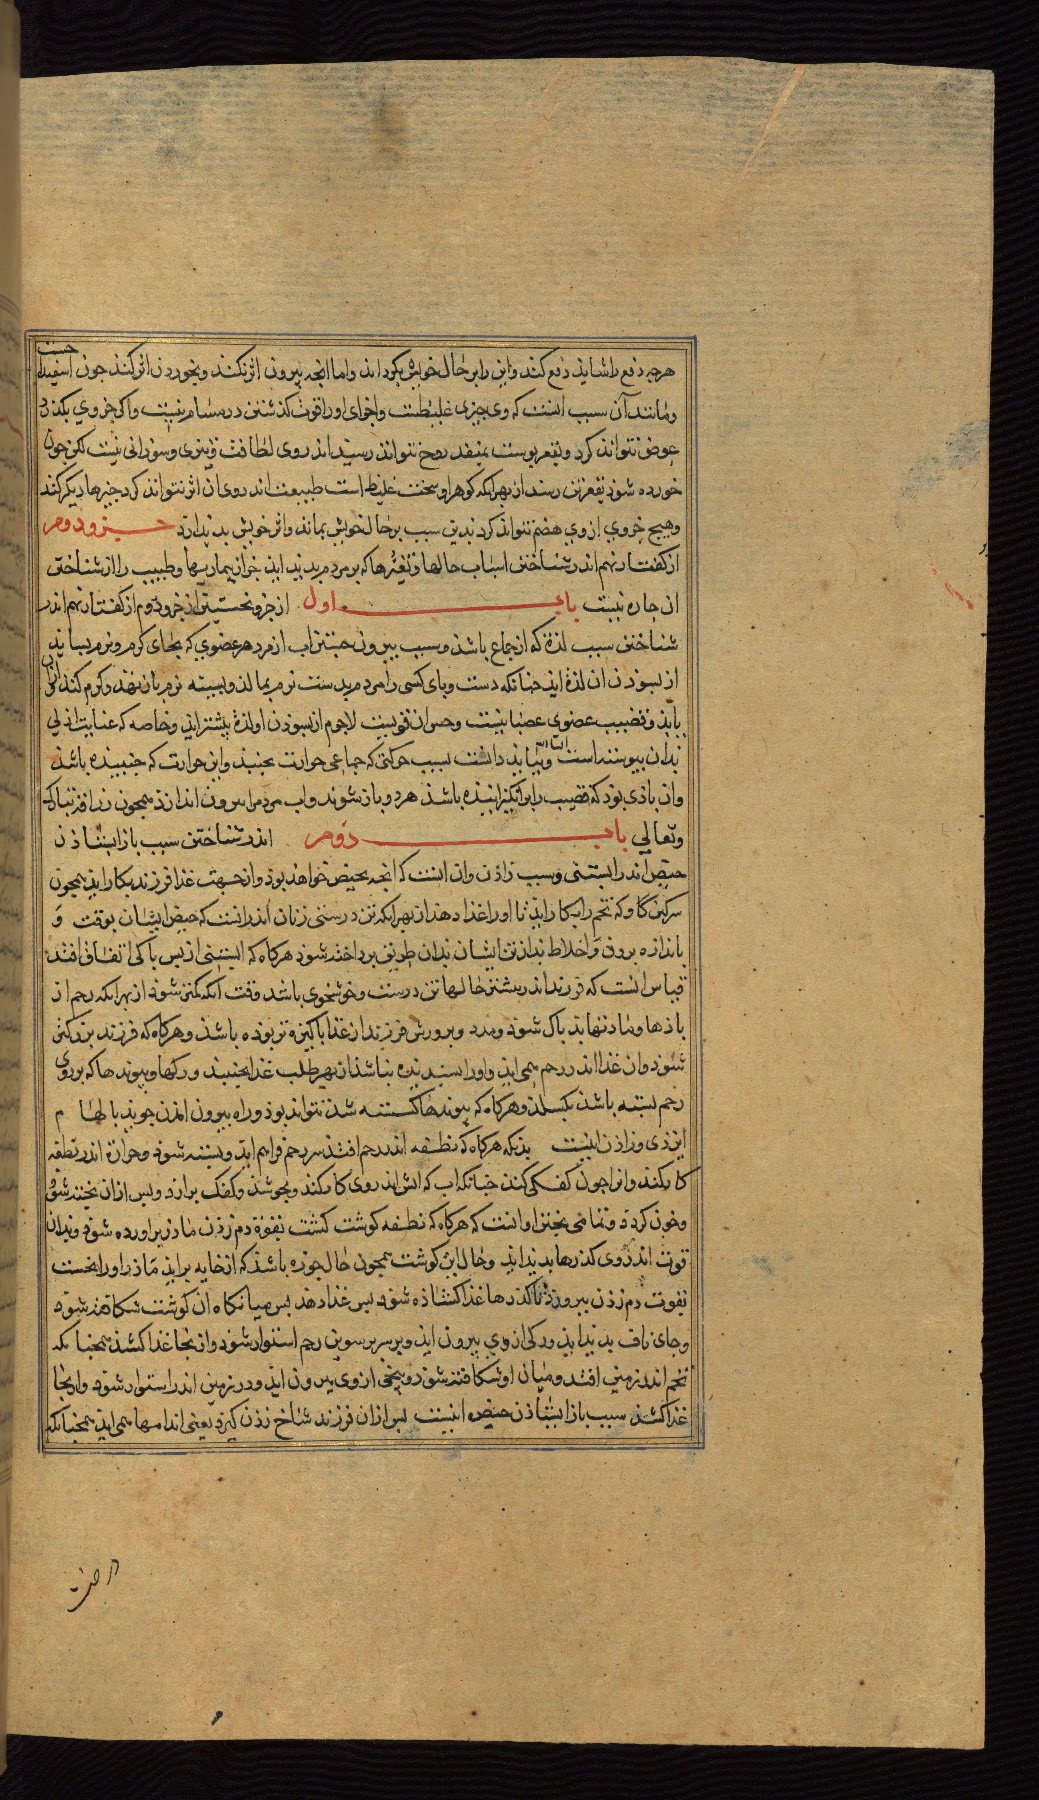 هرچه دفع را شاید دفع کند و این را بر حال خویش بگرداند و اما انچه بیرون اثر نکند و بخوردن اثر کند چون اسفیداج
و مانند آن سبب انست که وی چیزی غلیظست و اجزای او را قوت گذشتن در مسام نیست و اگر جزوی بگذرد
عوض نتواند کرد و بقعر پوست بمنفذ روح نتواند رسید اندر وی لطافت و تیزی و سوزانی نیست لکن چون
خورده شود بقعر تن رسد از بهر انکه گوهر او سخت غلیظ است طبیعت اندر وی آن اثر نتواند کرد چیزها دیگر کند
و هیچ جزوی از وی هضم نتواند کرد بدین سبب بر حال خویش بماند و اثر خویش بدید ارد جـــزو دوم
از گفتار نهم اندر شناختن اسباب حالها و تغیّرها که بر مردم بدید اید جز از بیماریها و طبیب را از شناختن
ان چاره نیست باب اول از جزو نخستین از جزو دوم از گفتار نهم اندر
شناختن سبب لذة که از جماع باشد و سبب بیرون جستن اب از مرد هر عضوی که بجای گرم و نرم بساید
از بسودن ان لذة اید چنانکه دست و پای کسی را مردم بدست نرم بمالد و بسینه نرم باز نهد و گرم کند لذتی
یابد و قضیب عضوی عصبانیست و حس ان قویست لاجرم از بسودن او لذة بیشتر اید و خاصه که عنایت ازلی
بدان پیوسته است و بباید دانست بسبب حرکتی که جماعی حرارت بجنبد و این حرارت که جنبیده باشد
و ان بادی بود که قضیب را بر انگیزاننده باشد هر دو باز شوند و اب مردم را بیرون اندازد همچون زراقه تبارک
و تعالی باب دوم اندر شناختن سبب باز ایستادن
حیض اندر ابستنی و سبب زادن و ان انست که انچه بحیض خواهد بود و از جهت غذا فرزند بکار اید همچون
سرگین گاو که تخم را بکار اید تا او را غذا دهد از بهر انکه تن درستی زنان اندر انست که حیض ایشان بوقت و
باندازه برود و اخلاط بد از تن ایشان بدان طریق پرداخته شود هرگاه که ابستنی از پس پاکی اتفاق افتد
قیاس انست که فرزند اندر بیشتر حالها تن درست و خوشخوی باشد وقت انکه گمیز شود از بهر انکه رحم از
بادها و مادتها بد پاک شود و مدد و پرورش فرزند از غذا پاکیزه تر بوده باشد و هرگاه که فرزند بزرگتر
شود و ان غذا اندر رحم همی اید و او را بسنده نباشد از بهر طلب غذا بجنبد و رگها و پیوندها که بر روی
رحم بسته باشد بگسلد و هرگاه که پیوندها گسسته شد نتواند بود و راه بیرون امدن جوید بالهام
ایزدی و زادن اینست بدانکه هرگاه که نطفه اندر رحم افتد سر رحم فراهم اید و بسته شود و حرارة اندر نطفه
کار بکند و انرا چون کفکی کند چنانکه اب که اتش اندر وی کار کند و بجوشد و کفک بر ارد و پس از ان پخته شود
و خون گردد و تمامی پختن او انست که هرگاه که نطفه گوشت گشت بقوة دم زدن مادر پرورده شود و بدان
قوت اندر وی گذرها بدید اید و حال این گوشت همچون حال جوزه باشد که از خایه بر اید مادر او را نخست
بقوت دم زدن بپرورد تا گذرها غذا گشاده شود پس غذا دهد پس میانگاه ان گوشت شکافته شود
و جای ناف بدید اید و رگی از وی بیرون اید و بر سر بر سوین رحم استوار شود و از انجا غذا کشد همچنانکه
تخم اندر زمین افتد و میان او شکافته شود و بیخی از وی بیرون اید و در زمین اندر استوار شود و از انجا
غذا کشد سبب باز ایستادن حیض اینست پس از ان فرزند شاخ زدن گیرد یعنی اندامها همی اید همچنانکه